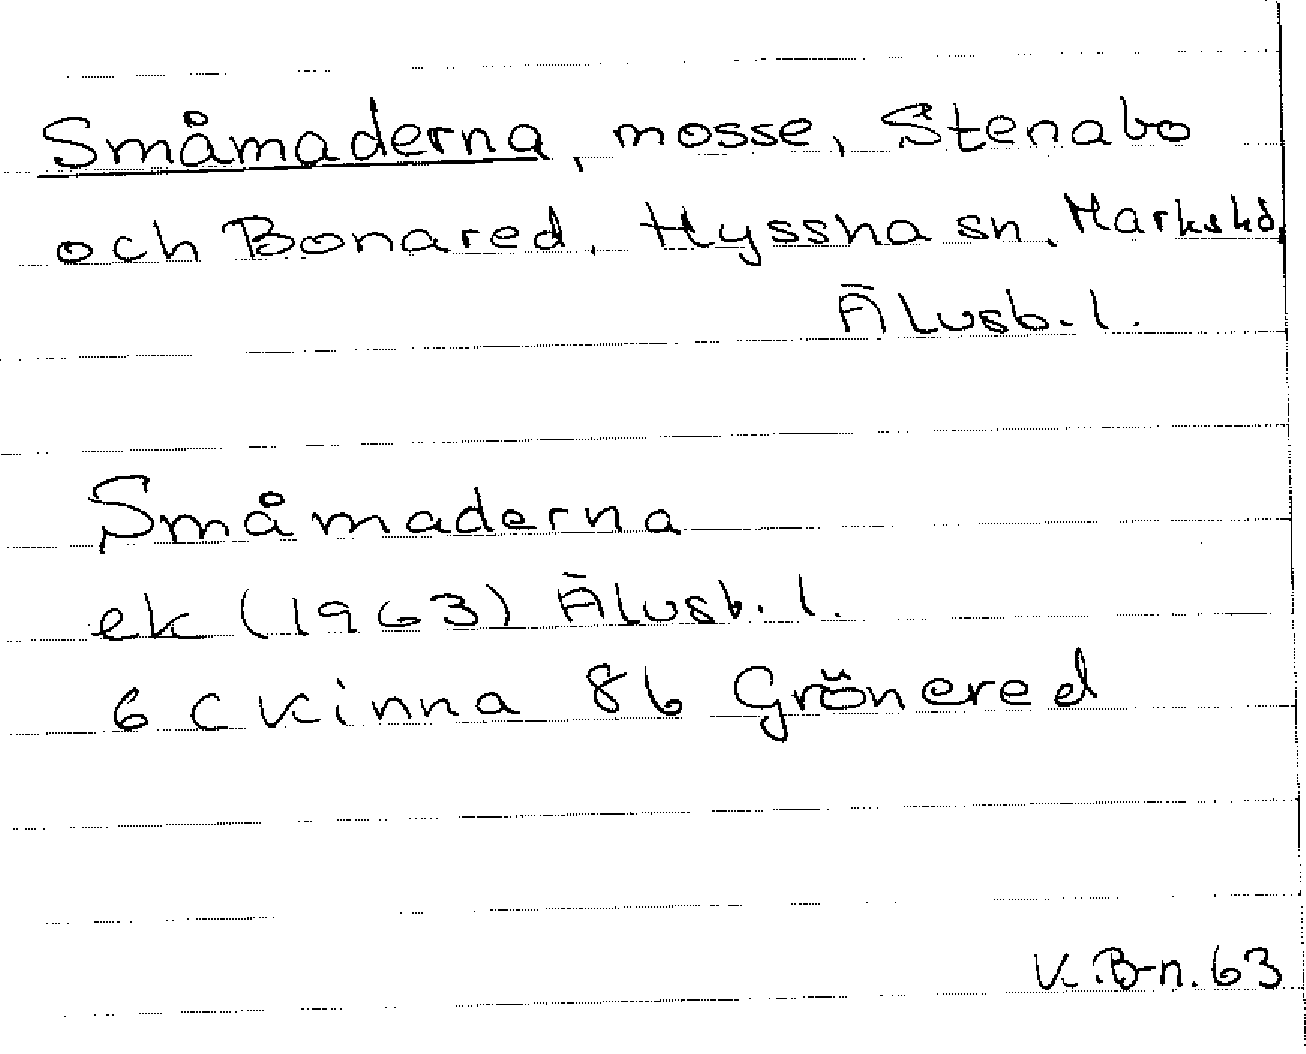 Småmaderna, mosse, Stenabo
och Bonared, Hyssna sn, Marks hd,
Älvsb. l.
Småmaderna
ek (1963) Älvsb. l.
6 C Kinna 8b Grönered
K. B-n. 63